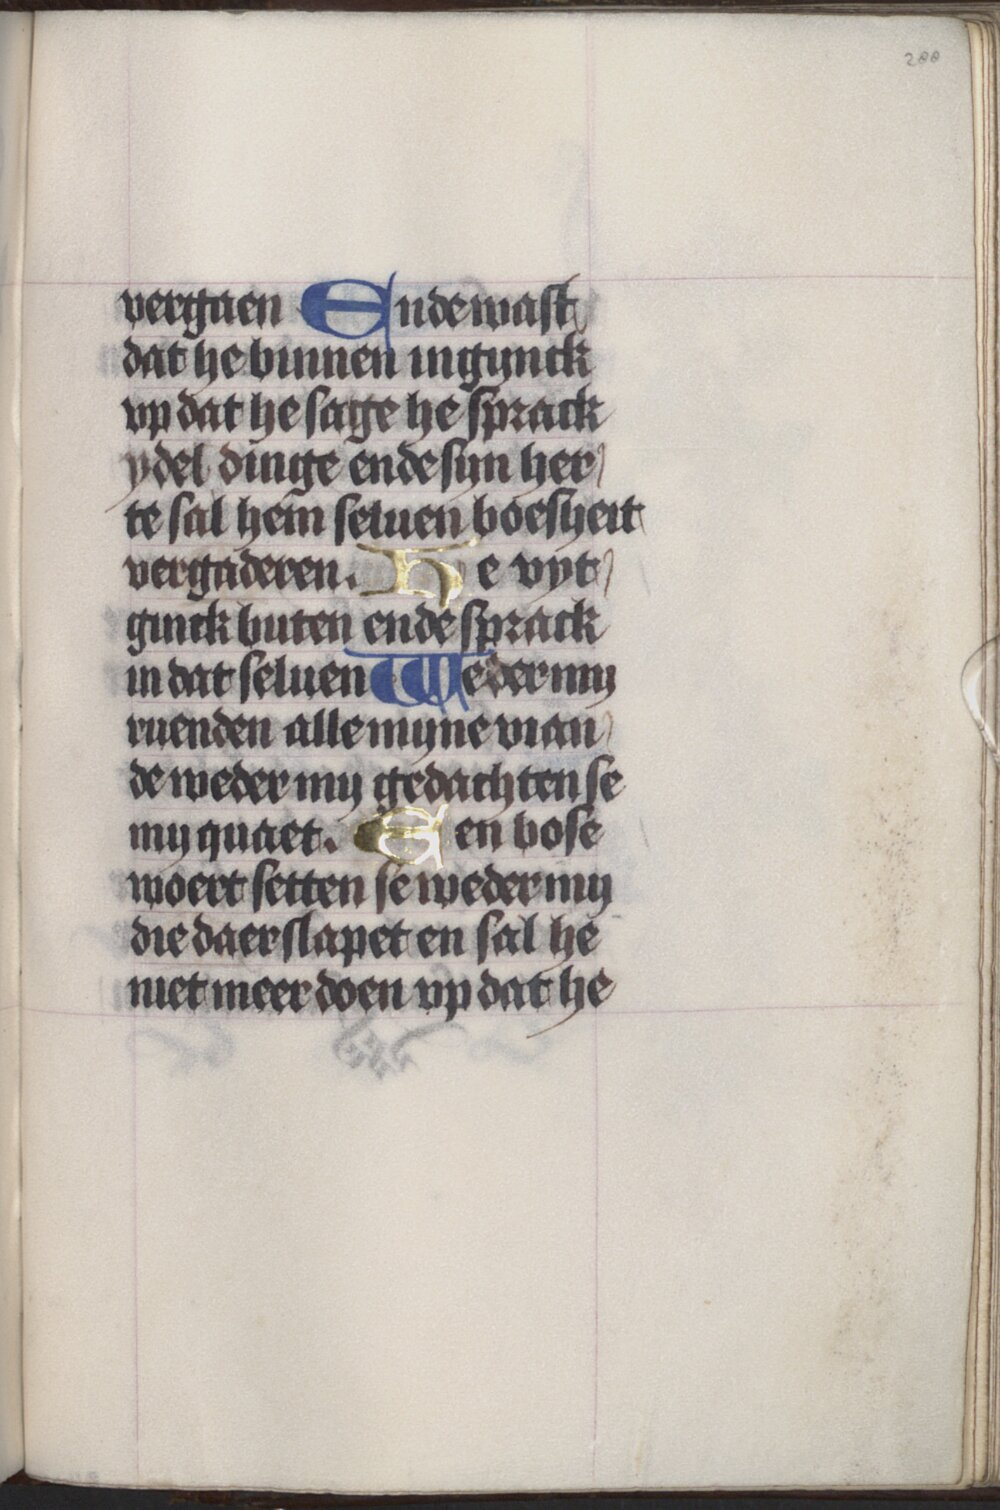 200
vergaen Ende wast
dat he binnen ingynck
vp dat he sage he sprack
ydel dinge ende syn her
te sal hem seluen boesheit
vergaderen. He vyt
ginck buten ende sprack
in dat seluen Weder my
ruenden alle myne vian
de weder my gedachten se
my quaet. Een bose
woert setten se weder my
die daer slapet en sal he
niet meer doen vp dat he